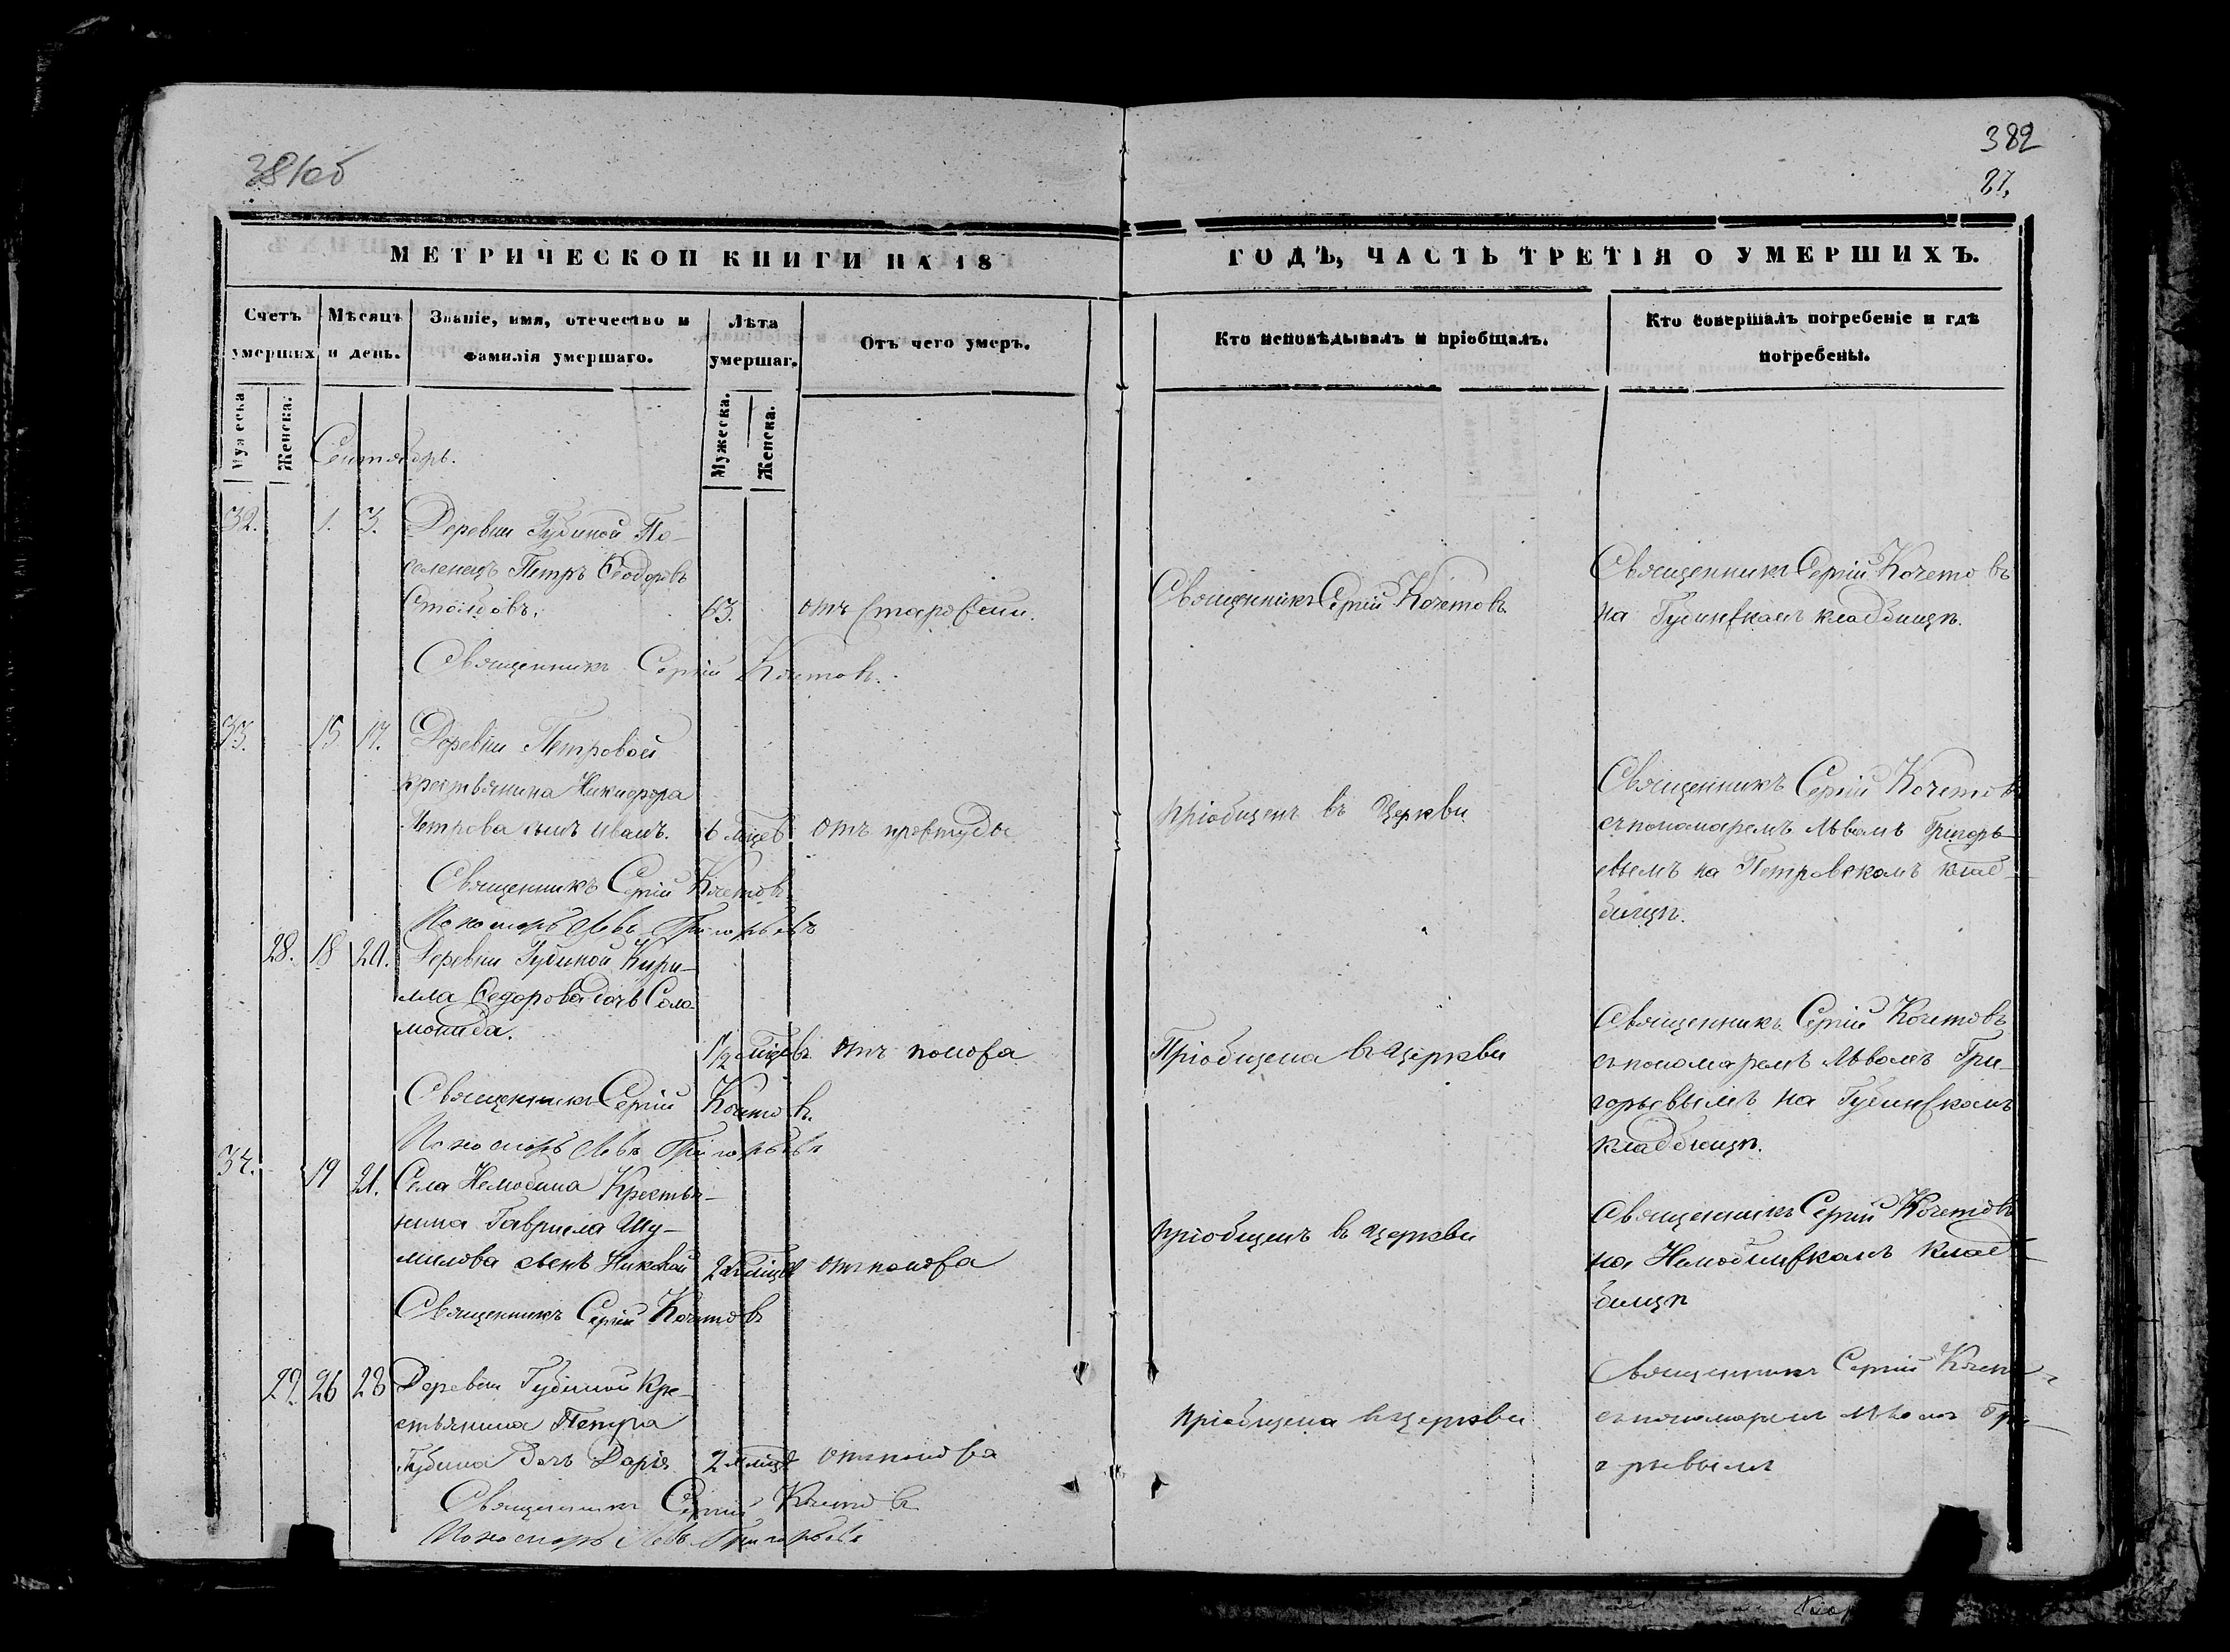 381об
382
87.
МЕТРИЧЕСКОЙ КНИГИ НА 18
ГОДЪ, ЧАСТЬ ТРЕТІЯ О УМЕРШИХЪ.
Счетъ умерших
Мѣсяцъ и день.
Званіе, имя, отечество и фамилія умершаго.
Лѣта умершаг.
Отъ чего умеръ.
Кто исповѣдывалъ и пріобщалъ.
Кто совершалъ погребеніе и гдѣ погребены.
Мужеска
Женска.
Мужеска.
Женска.
Сентябрь.
32. 1. 3. Деревни Губиной По-
селенецъ Петръ Феодоровъ
63. отъ старости.
Священникъ Сергій Кочетовъ
Священникъ Сергій Кочетовъ
на Губинскомъ кладбищѣ.
Священникъ Сергій Кочетовъ.
33. 15 17. Деревни Петровой
крестьянина Никифора
Петрова сынъ Иванъ. 6 мцев. отъ простуды
пріобщенъ въ Церкви
Священникъ Сергій Кочетовъ
съ пономаремъ Львомъ Григорь-
евымъ на Петровскомъ клад-
бищѣ.
Священникъ Сергій Кочетовъ
Пономарь Левъ Григорьевъ
28. 18 20. Деревни Губиной Кири-
лла Федорова дочь Соло-
монида.
1/2 мцевъ отъ поноса
Пріобщена въ Церкви
Священникъ Сергій Кочетовъ
съ пономаремъ Львомъ Гри-
горьевымъ на Губинскомъ
кладбищѣ.
Священникъ Сергій Кочетовъ.
Пономарь Левъ Григорьевъ
34. 19 21. Села Немодина Крестья-
нина Гавриила Шу-
милова сынъ Николай 2 мцев отъ поноса
пріобщенъ въ Церкви
Священникъ Сергій Кочетовъ
на Немодинскомъ клад-
бищѣ
Священникъ Сергій Кочетовъ
29. 26 28 Деревни Губиной Кре-
стьянина Петра
Губина дочь Дарія 2 мцев отъ поноса
пріобщена въ Церкви
Священникъ Сергій Кочетов
съ пономаремъ Львомъ Гри-
горьевымъ
Священникъ Сергій Кочетовъ
Пономарь Левъ Григорьевъ